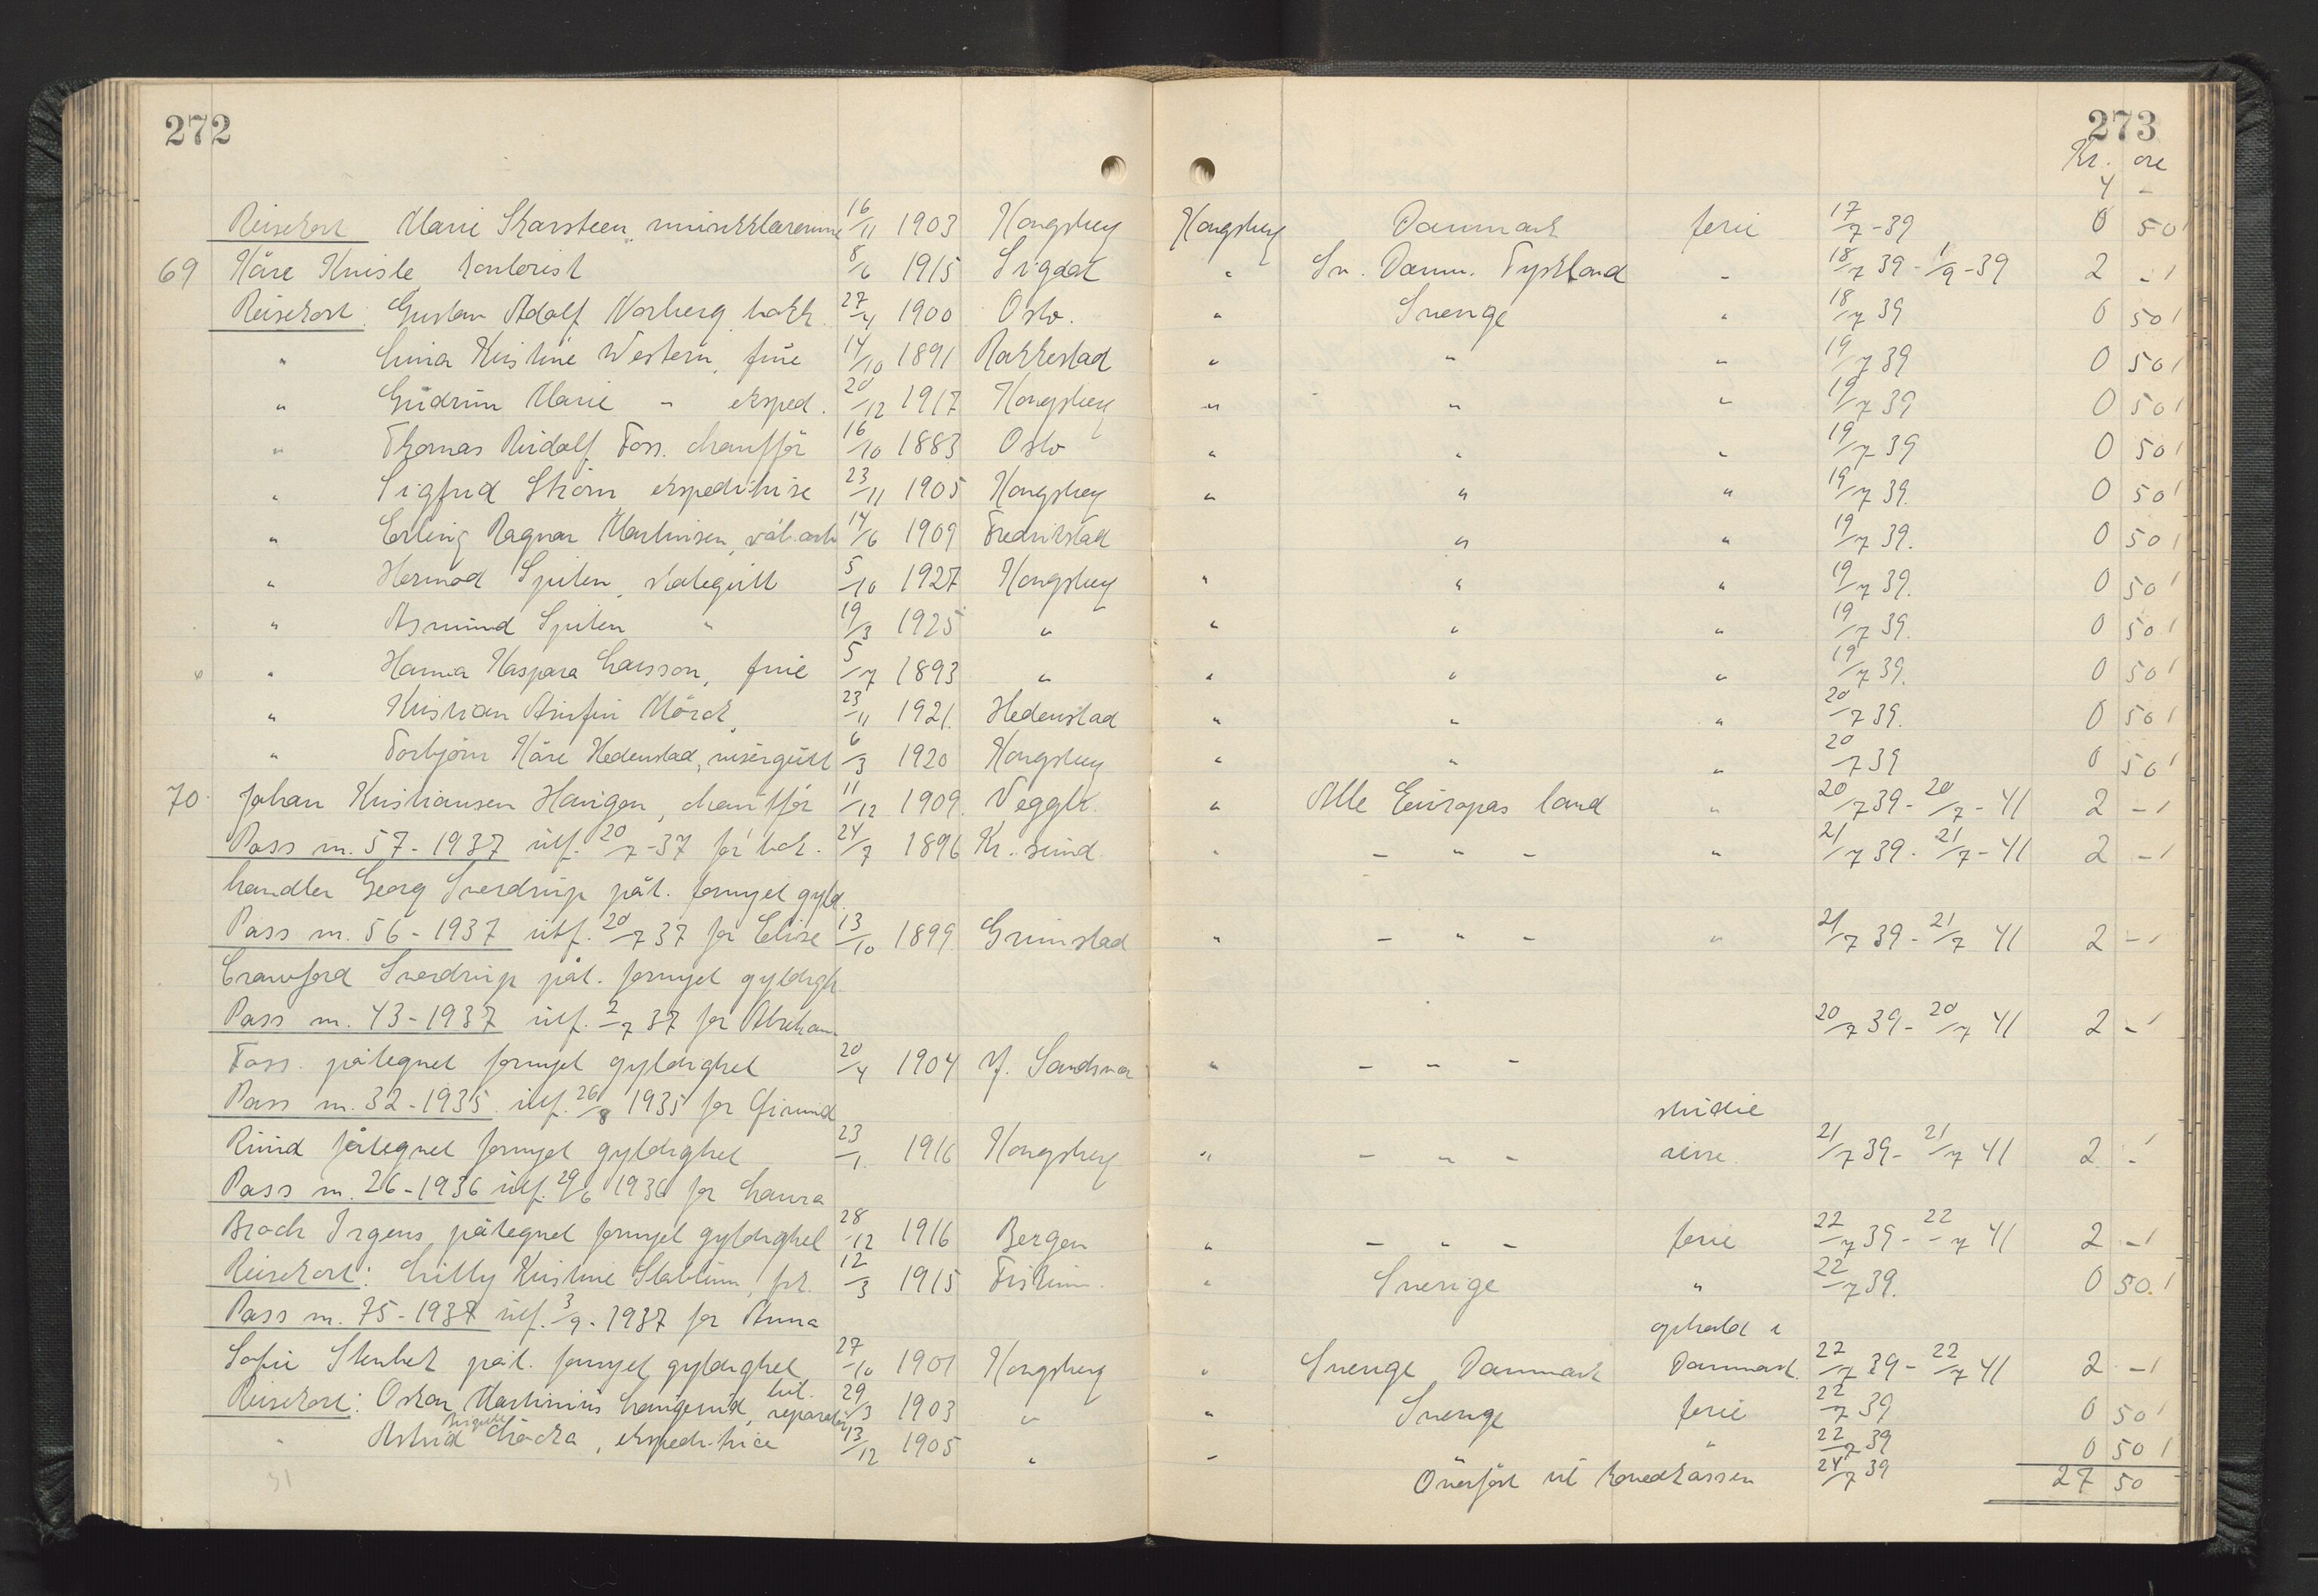 272 273
Kr. øre
4 -
Reisekort Marie Skarsteen, musikklærerinne 16/11 1903 Kongsberg Kongsberg Danmark ferie 17/7-39 0 50
69 Kåre Knisle kontorist 8/6 1915 Sigdal " Sv. Danm. Tyskland - 18/7 39 - 1/9-39 2 -
Reisekort: Gustav Adolf Norberg, bokh. 27/4 1900 Oslo. " Sverige " 18/7 39 0 50
" Lina Kristine Western, frue 14/10 1891 Rakkestad " " " 19/7 39 0 50
" Gudrun Marie " eksped. 20/12 1917 Kongsberg " " " 19/7 39 0 50
" Thomas Rudolf Foss. chauffør 16/10 1883 Oslo " " " 19/7 39 0 50
" Sigfrid Strøm ekspeditrise 23/11 1905 Kongsberg " " " 19/7 39. 0 50
" Erling Ragnar Martinsen, våb.arb 14/6 1909 Fredrikstad " " 19/7 39. 0 50
" Hermod Spiten, skolegutt 5/10 1927 Kongsberg " " " 19/7 39. 0 50
" Asmund Spiten " 19/3 1925 " " " " 19/7 39. 0 50
" Hanna Kaspara Larsson, frue 5/7 1893 " " " " 19/7 39. 0 50
" Kristian Arnfin Mörch, 23/11 1921. Hedenstad " " " 20/7 39. 0 50
" Torbjørn Kåre Hedenstad, visergutt 6/3 1920 Kongsberg " " " 20/7 39 0 50
70. Johan Kristiansen Havigen, chauffør 11/12 1909. Veggli. " Alle Europas land " 20/7 39 - 20/7 - 41 2 -
Pass nr. 57 - 1937 utf. 20/7-37 for bok. 24/7 1896 Kr. sund " - " - " 21/7 39 - 21/7 - 41 2 -
handler Georg Sverdrup påt. fornyet gyld.
Pass nr. 56 - 1937 utf. 20/7 37 for Elise 13/10 1899. Grimstad " - " - " 21/7 39 - 21/7 41 2 -
Crawford Sverdrup påt. fornyet gyldigh.
Pass nr. 43 - 1937 utf. 2/7 37 for Abraham 20/7 39 - 20/7 41 2 -
Foss. påtegnet fornyet gyldighet 20/4 1904 Y. Sandsvær " - " -
Pass nr. 32 - 1935 utf. 26/8 1935 for studie
Ruud påtegnet fornyet gyldighet 23/1. 1916 Kongsberg " - " - reise. 21/7 39 - 21/7 41 2 -
Pass nr. 26 - 1936 utf. 29/6 1936 for Laura
Broch Irgens, påtegnet fornyet gyldighet 28/12 1916 Bergen " - " - ferie 22/7 39 - 22/7 41 2 -
Reisekort: Lilly Kristine Stablum, frk. 12/3 1915 Fiskum. " Sverige " 22/7 39. 0 50
Pass nr. 75 - 1937 utf. 3/9 - 1937 for Anna ophold i
Sofie Stenbek påt. fornyet gyldighet 27/10 1901 Kongsberg " Sverige Danmark Danmark. 22/7 39 - 22/7 41 2 -
Reisekort: Oskar Martinius Laugerud, bil. reparatør 29/3 1903 " " Sverige ferie 22/7 39 0 50
" Astrid Birgitte , ekspeditrice 13/12 1905 " " " 22/7 39 0 50
31 Overført til hovedkassen 24/7 39 27 50